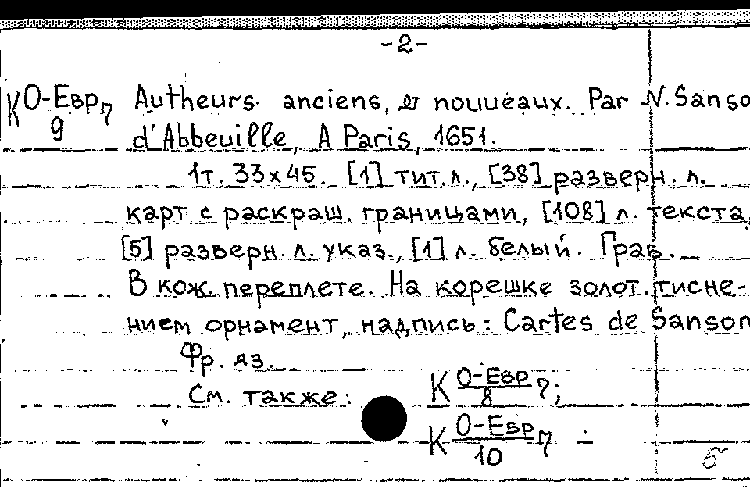 -2-
К О-Евр 7 Autheurs anciens, & nouueaux. Par N. Sanso
9 d'Abbeuille, A Paris, 1651.
1т. 33x45. [1] тит.л., [38] разверн. л.
карт с раскраш. границами, [108] л. текста,
[5] разверн. л. указ., [1] л. белый. Грав.
В кож. переплете. На корешке золот. тисне-
нием орнамент, надпись: Cartes de Sanson
Фр. яз.
См. также: К О-Евр 7;
8
К О-Евр 7
10